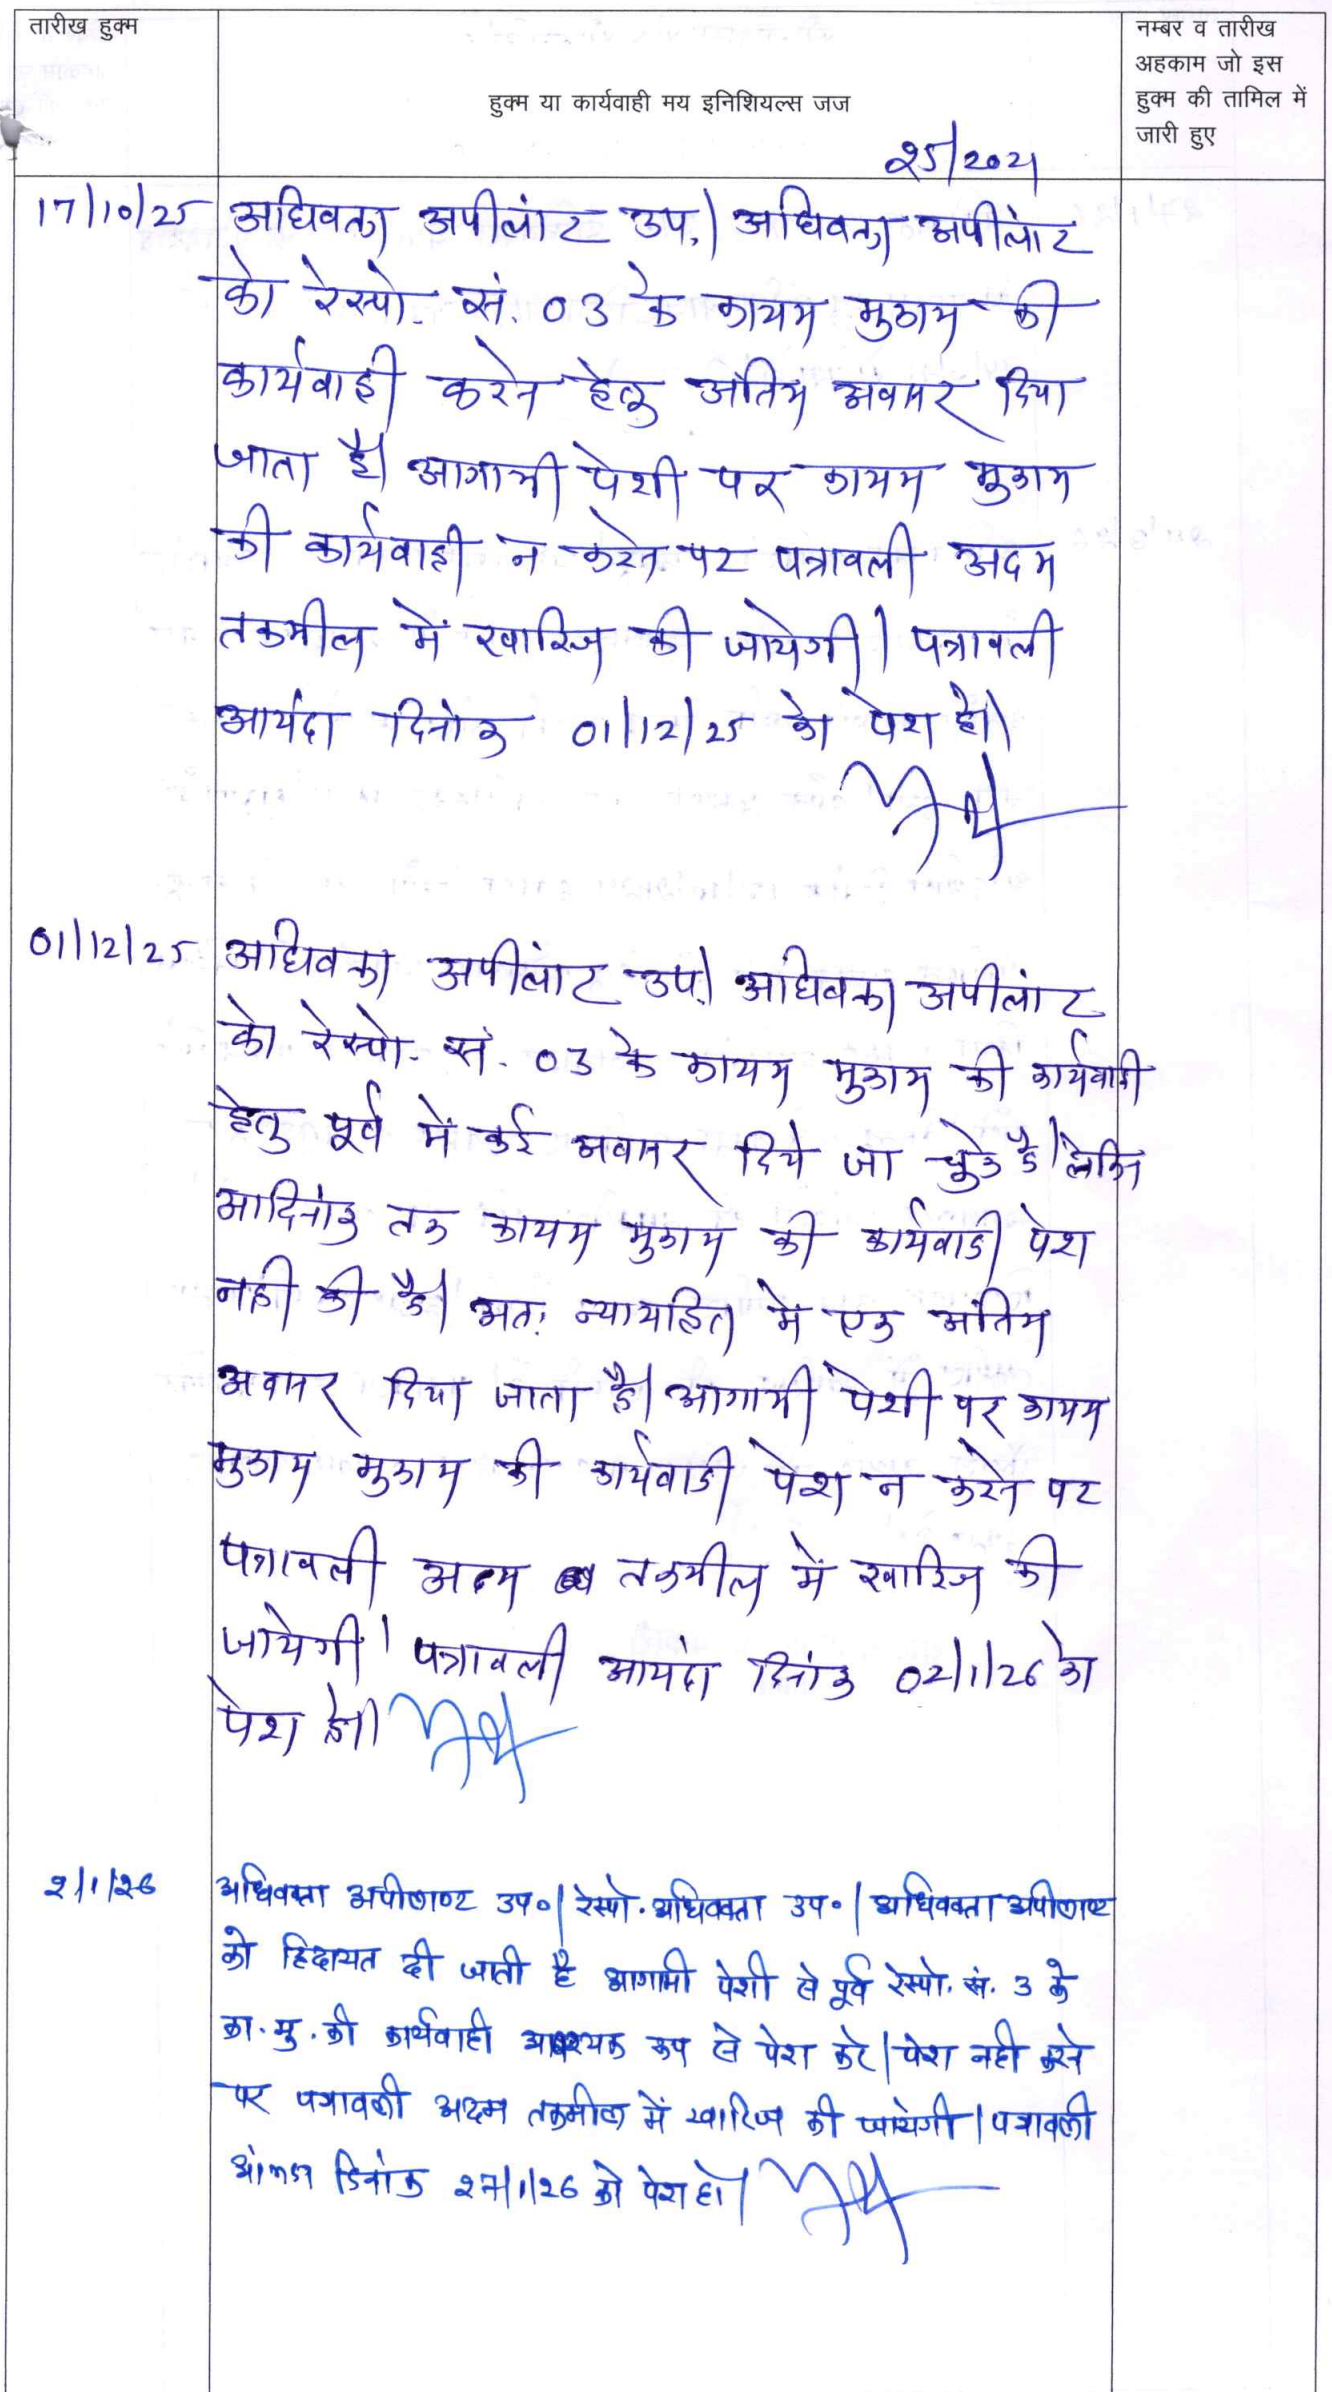 तारीख हुक्म
हुक्म या कार्यवाही मय इनिशियल्स जज
नम्बर व तारीख
अहकाम जो इस
हुक्म की तामिल में
जारी हुए
25/2021
17/10/25 अधिवक्ता अपीलांट उप.। अधिवक्ता अपीलांट
को रेस्पो. सं. 03 के कायम मुकाम की
कार्यवाही करने हेतु अंतिम अवसर दिया
जाता है। आगामी पेशी पर कायम मुकाम
की कार्यवाही न करने पर पत्रावली अदम
तकमील में खारिज की जायेगी। पत्रावली
आयंदा दिनांक 01/12/25 को पेश हो।
01/12/25 अधिवक्ता अपीलांट उप.। अधिवक्ता अपीलांट
को रेस्पो. सं. 03 के कायम मुकाम की कार्यवाही
हेतु पूर्व में कई अवसर दिये जा चुके है। लेकिन
आदिनांक तक कायम मुकाम की कार्यवाही पेश
नही की है। अतः न्यायहित में एक अंतिम
अवसर दिया जाता है। आगामी पेशी पर कायम
मुकाम मुकाम की कार्यवाही पेश न करने पर
पत्रावली अदम तकमील में खारिज की
जायेगी। पत्रावली आयंदा दिनांक 02/1/26 को
पेश हो।
2/1/26 अधिवक्ता अपीलाण्ट उप०। रेस्पो. अधिवक्ता उप०। अधिवक्ता अपीलाण्ट
को हिदायत दी जाती है आगामी पेशी से पूर्व रेस्पो. सं. 3 के
का.मु. की कार्यवाही आवश्यक रूप से पेश करे। पेश नही करने
पर पत्रावली अदम तकमील में खारिज की जायेगी। पत्रावली
दिनांक 27/1/26 को पेश हो।